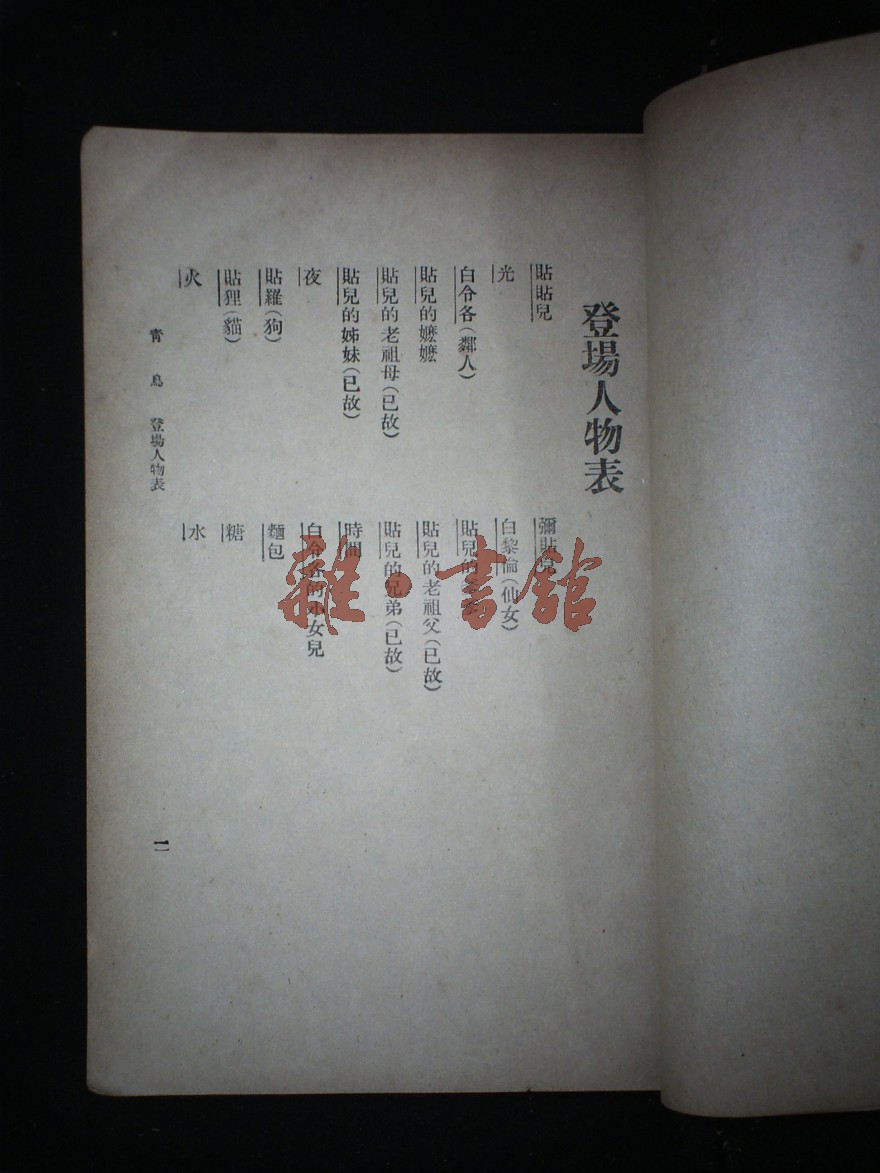 登場人物表
貼貼兒
彌貼兒
光
白黎倫(仙女)
白令各(鄰人)
貼兒的
貼兒的嬤嬤
貼兒的老祖父(已故)
貼兒的老祖母(已故)
貼兒的兄弟(已故)
貼兒的姊妹(已故)
時間
夜
白令各的小女兒
貼羅(狗)
麵包
貼狸(貓)
糖
火
水
青鳥 登場人物表
雜·書館